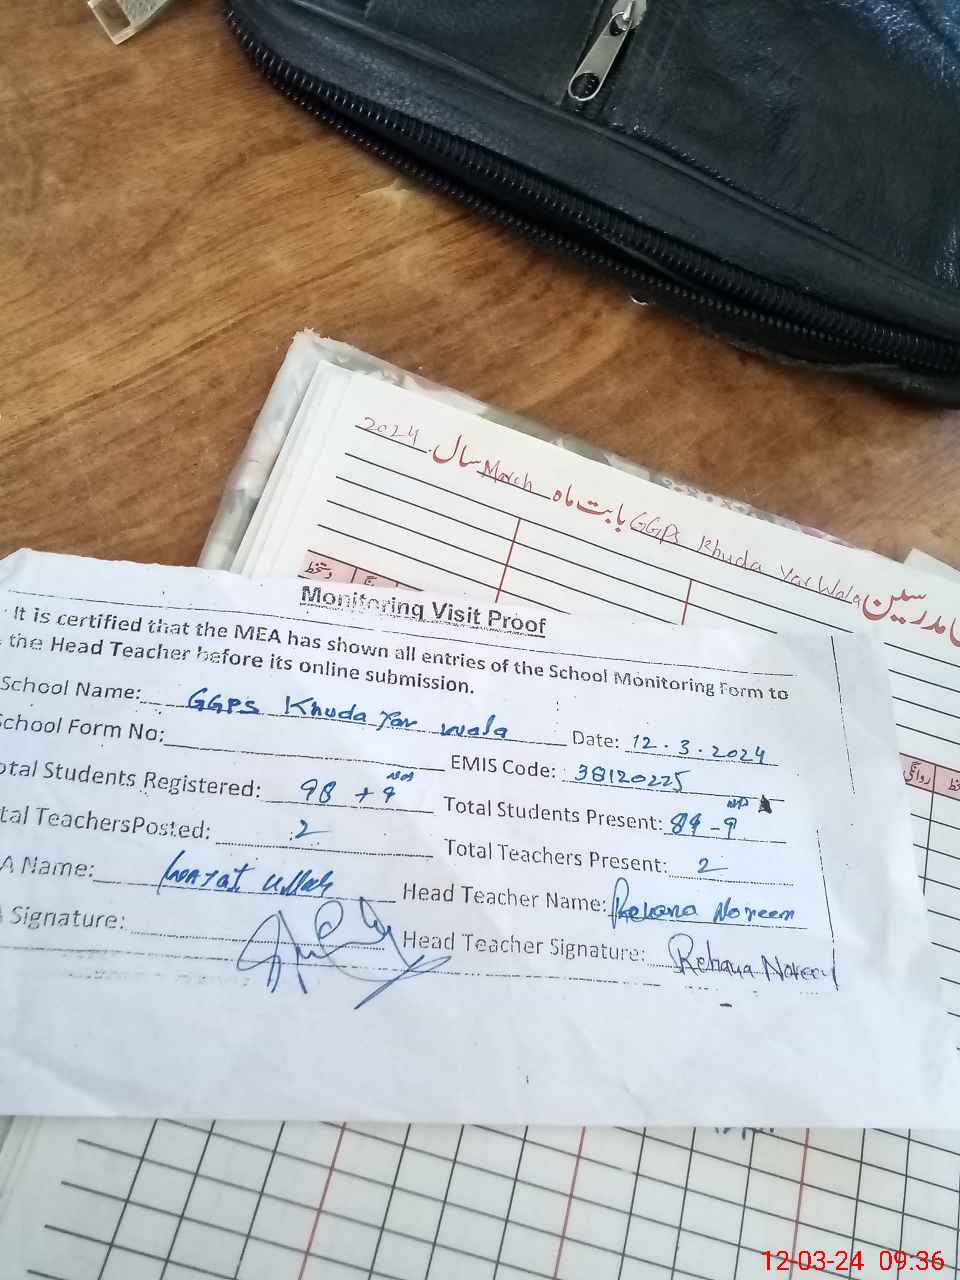 2024 سال March بابت ماہ GGPS Khuda Yar Wala مدرسین
دستخط
Monitoring Visit Proof
It is certified that the MEA has shown all entries of the School Monitoring Form to
the Head Teacher before its online submission.
School Name: GGPS Khuda Yar Wala Date: 12.3.2024
School Form No: EMIS Code: 38120225
otal Students Registered: 98 + 9 Total Students Present: 89 - 9
tal TeachersPosted: 2 Total Teachers Present: 2
A Name: Ullah Head Teacher Name: Rehana Noreen
Signature: Head Teacher Signature: Rehana Noreen
روانگی
12-03-24 09:36